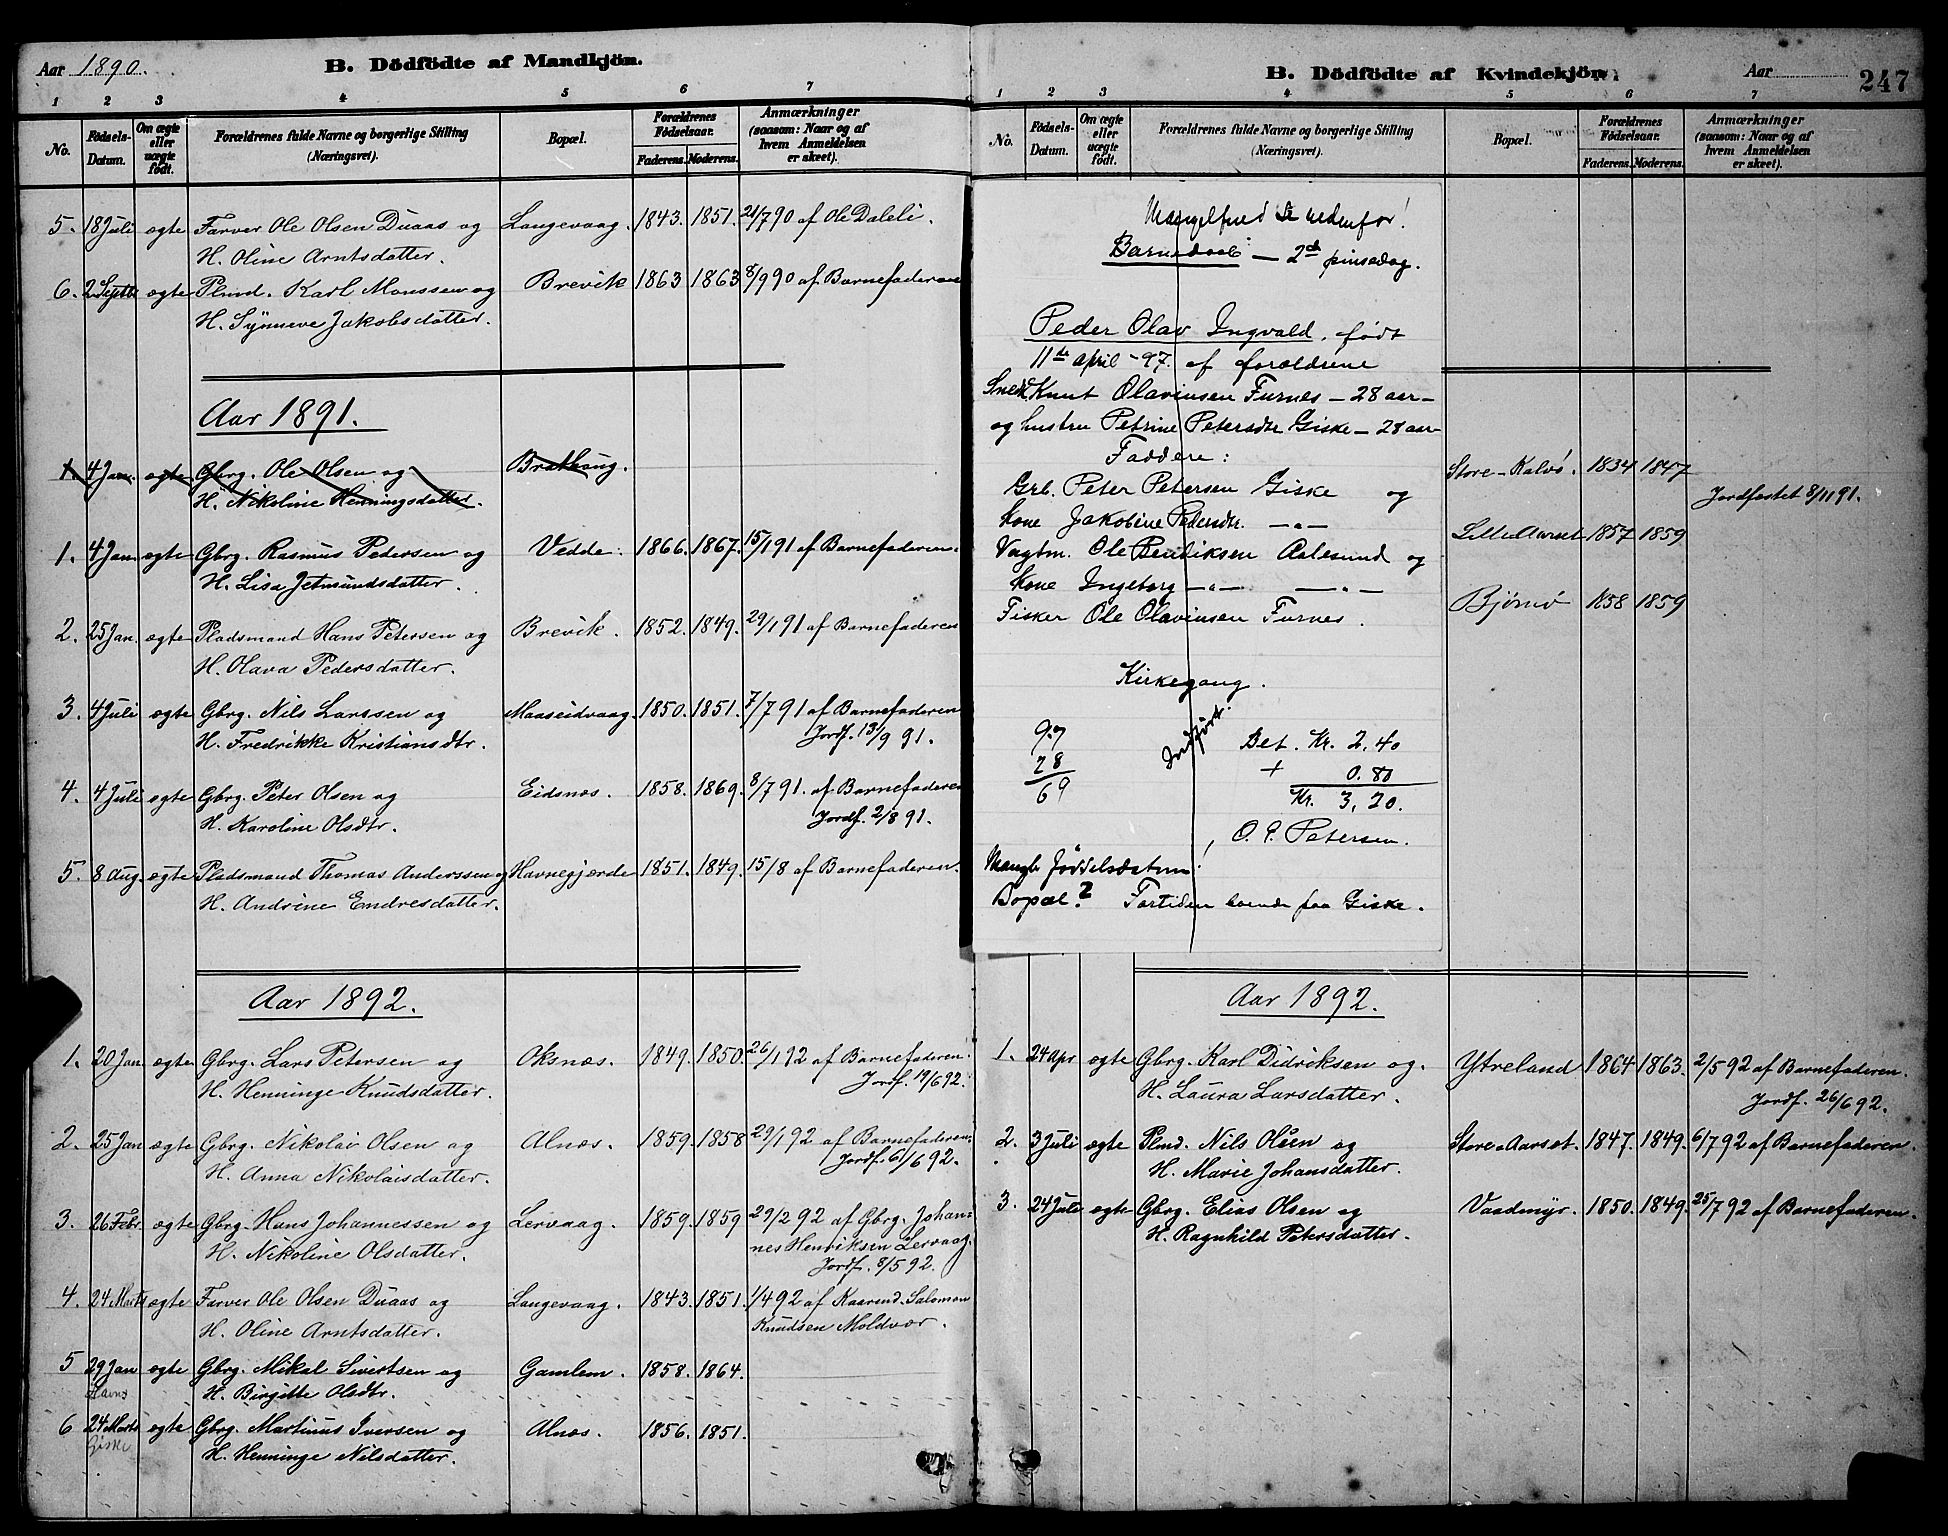 Aar 1890.
B. Dödfödte af Mandkjön.
1 2 3 4 5 6 7
No.
Födsels-Datum.
Om ægte eller uægte födt.
Forældrenes fulde Navne og borgerlige Stilling
(Næringsvei).
Bopæl.
Forældrenes Födselsaar.
Faderens. Moderens.
Anmærkninger
(saasom: Naar og af
hvem Anmeldelsen
er skeet).
5. 18 Juli ægte Farver Ole Olsen Duaas og Langevaag. 1843. 1851. 21/7 90 af Ole Daleli.
H. Oline Arntsdatter.
6. 2 Septb ægte Plmd. Karl Monssen og Brevik 1863 1863 8/9 90 af Barnefaderen
H. Synneve Jakobsdatter.
Aar 1891.
1. 4 Jan. ægte Gbrg. Ole Olsen og Brathaug.
H. Nikoline Henningsdatter.
1. 4 Jan ægte Gbrg. Rasmus Pedersen og Vedde. 1866. 1867. 15/1 91 af Barnefaderen.
H. Lisa Jetmundsdatter.
2. 25 Jan. ægte Pladsmand Hans Petersen og Brevik. 1852. 1849. 29/1 91 af Barnefaderen
H. Olava Pedersdatter.
3. 4 Juli ægte Gbrg. Nils Larssen og Maaseidvaag. 1850. 1851. 7/7 91 af Barnefaderen
H. Fredrikke Kristiansdtr. Jordf. 13/9 91.
4. 4 Juli ægte Gbrg. Peter Olsen og Eidsnæs. 1858. 1869. 8/7 91. af Barnefaderen
H. Karoline Olsdtr. Jordf. 2/8 91.
5. 8 Aug. ægte Pladsmand Thomas Anderssen og Havnegjærde 1851. 1849. 15/8 af Barnefaderen.
H. Andrine Endresdatter.
Aar 1892.
1. 20 Jan ægte Gbrg. Lars Petersen og Oksnæs. 1849. 1850. 26/1 92 af Barnefaderen.
H. Henninge Knudsdatter. Jordf. 19/6 92.
2. 25 Jan ægte Gbrg. Nikolai Olsen og Alnæs. 1859. 1858 29/1 92 af Barnefaderen.
H. Anna Nikolaisdatter. Jordf. 6/6 92.
3. 26 Febr ægte Gbrg. Hans Johannessen og Lervaag. 1859. 1859 29/2 92 af Gbrg. Johan-
H. Nikoline Olsdatter. nes Henriksen Lervaag.
Jordf. 8/5 92.
4. 24 Marts ægte Farver Ole Olsen Duaas og Langevaag. 1843. 1851. 1/4 92 af Kaarmd. Salomon
H. Oline Arntsdatter. Knudsen Moldvær.
5 29 Jan ægte Gbrg. Mikal Sivertsen og Gamlem. 1858. 1864.
H. Birgitte Olsdtr.
6 24 Marts ægte Gbrg. Martinus Iversen og Alnæs. 1856. 1851.
Giske H. Henninge Nilsdatter.
B. Dödfödte af Kvindekjön.
Aar
247
1 2 3 4 5 6 7
No.
Födsels-Datum.
Om ægte eller uægte födt.
Forældrenes fulde Navne og borgerlige Stilling
(Næringsvei).
Bopæl.
Forældrenes Födselsaar.
Faderens. Moderens.
Anmærkninger
(saasom: Naar og af
hvem Anmeldelsen
er skeet).
Mangelfuld Se nedenfor!
Barnedaab — 2den pinsedag.
Peder Olav Ingvald, født
11te april -97. af forældrene
Knut Olavinsen Furnes — 28 aar —
og hustru Petrine Petersdtr Giske — 28 aar
Faddere:
Grb. Peter Petersen Giske og
Kone Jakobine Pedersdtr. — " —
Vagtm. Ole Bendiksen Aalesund og
Kone Ingeborg — " — — " —
Fisker Ole Olavinsen Furnes.
Kirkegang.
Indført.
97
28
69
Bet. Kr. 2,40
+ 0.80
Kr. 3,20.
O. P. Petersen.
Mangler fødselsdatum!
Bopæl? Fortiden boende paa Giske.
Store-Kalvø. 1834 1847
Jordfæstet 8/11 91.
Lille Aarset 1857 1859
Bjørnø 1858 1859
Aar 1892.
1. 24 Apr ægte Gbrg. Karl Didriksen og. Ytreland 1864 1863. 2/5 92 af Barnefaderen.
H. Laura Larsdatter. Jordf. 26/6 92.
2. 3 Juli ægte Plmd. Nils Olsen og Store-Aarset. 1847. 1849. 6/7 92 af Barnefaderen.
H. Marie Johansdatter.
3. 24 Juli ægte Gbrg. Elias Olsen og Vaadmyr. 1850. 1849. 25/7 92 af Barnefaderen.
H. Ragnhild Petersdatter.